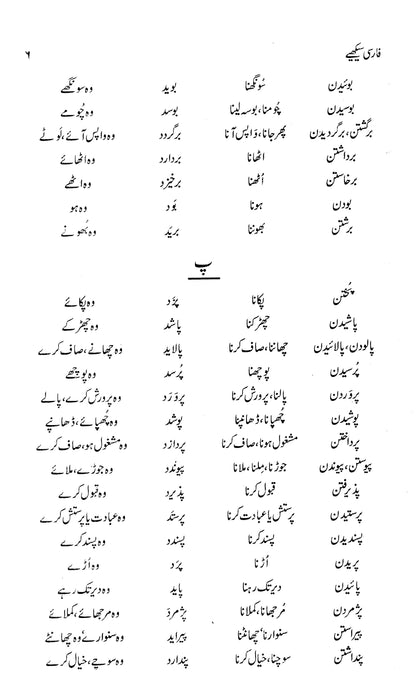 فارسی سیکھیے ۶
بوئیدن سُونگھنا بوید وہ سونگھے
بوسیدن چُومنا، بوسہ لینا بوسد وہ چُومے
برگشتن، برگردیدن پھر جانا، واپس آنا برگردد وہ واپس آئے، لَوٹے
برداشتن اٹھانا بردارد وہ اٹھائے
برخاستن اُٹھنا برخیزد وہ اٹھے
بودن ہونا بَود وہ ہو
برشتن بھوننا بریَد وہ بھُونے
پ
پُختن پکانا پزَد وہ پکائے
پاشیدن چھڑکنا پاشد وہ چھڑکے
پالودن، پالائیدن چھاننا، صاف کرنا پالاید وہ چھانے، صاف کرے
پُرسیدن پوچھنا پُرسد وہ پوچھے
پروَردن پالنا، پرورش کرنا پروَرَد وہ پرورش کرے، پالے
پوشیدن چُھپانا، ڈھانپنا پوشد وہ چُھپائے، ڈھانپے
پرداختن مشغول ہونا، صاف کرنا پردازد وہ مشغول ہو، صاف کرے
پیوستن، پیوندن جوڑنا، مِلنا، ملانا پیوندد وہ جوڑے، ملائے
پذیرفتن قبول کرنا پذیرد وہ قبول کرے
پرستیدن پرستش یا عبادت کرنا پرستَد وہ عبادت یا پرستش کرے
پسندیدن پسند کرنا پسندد وہ پسند کرے
پریدن اُڑنا پرَد وہ اُڑے
پائیدن دیر تک رہنا پاید وہ دیر تک رہے
پژمردن مُرجھانا، کملانا پژمردَ وہ مرجھائے، کملائے
پیراستن سنوارنا، چھانٹنا پیراید وہ سنوارے، وہ چھانٹے
پنداشتن سوچنا، خیال کرنا پندارد وہ سوچے، خیال کرے